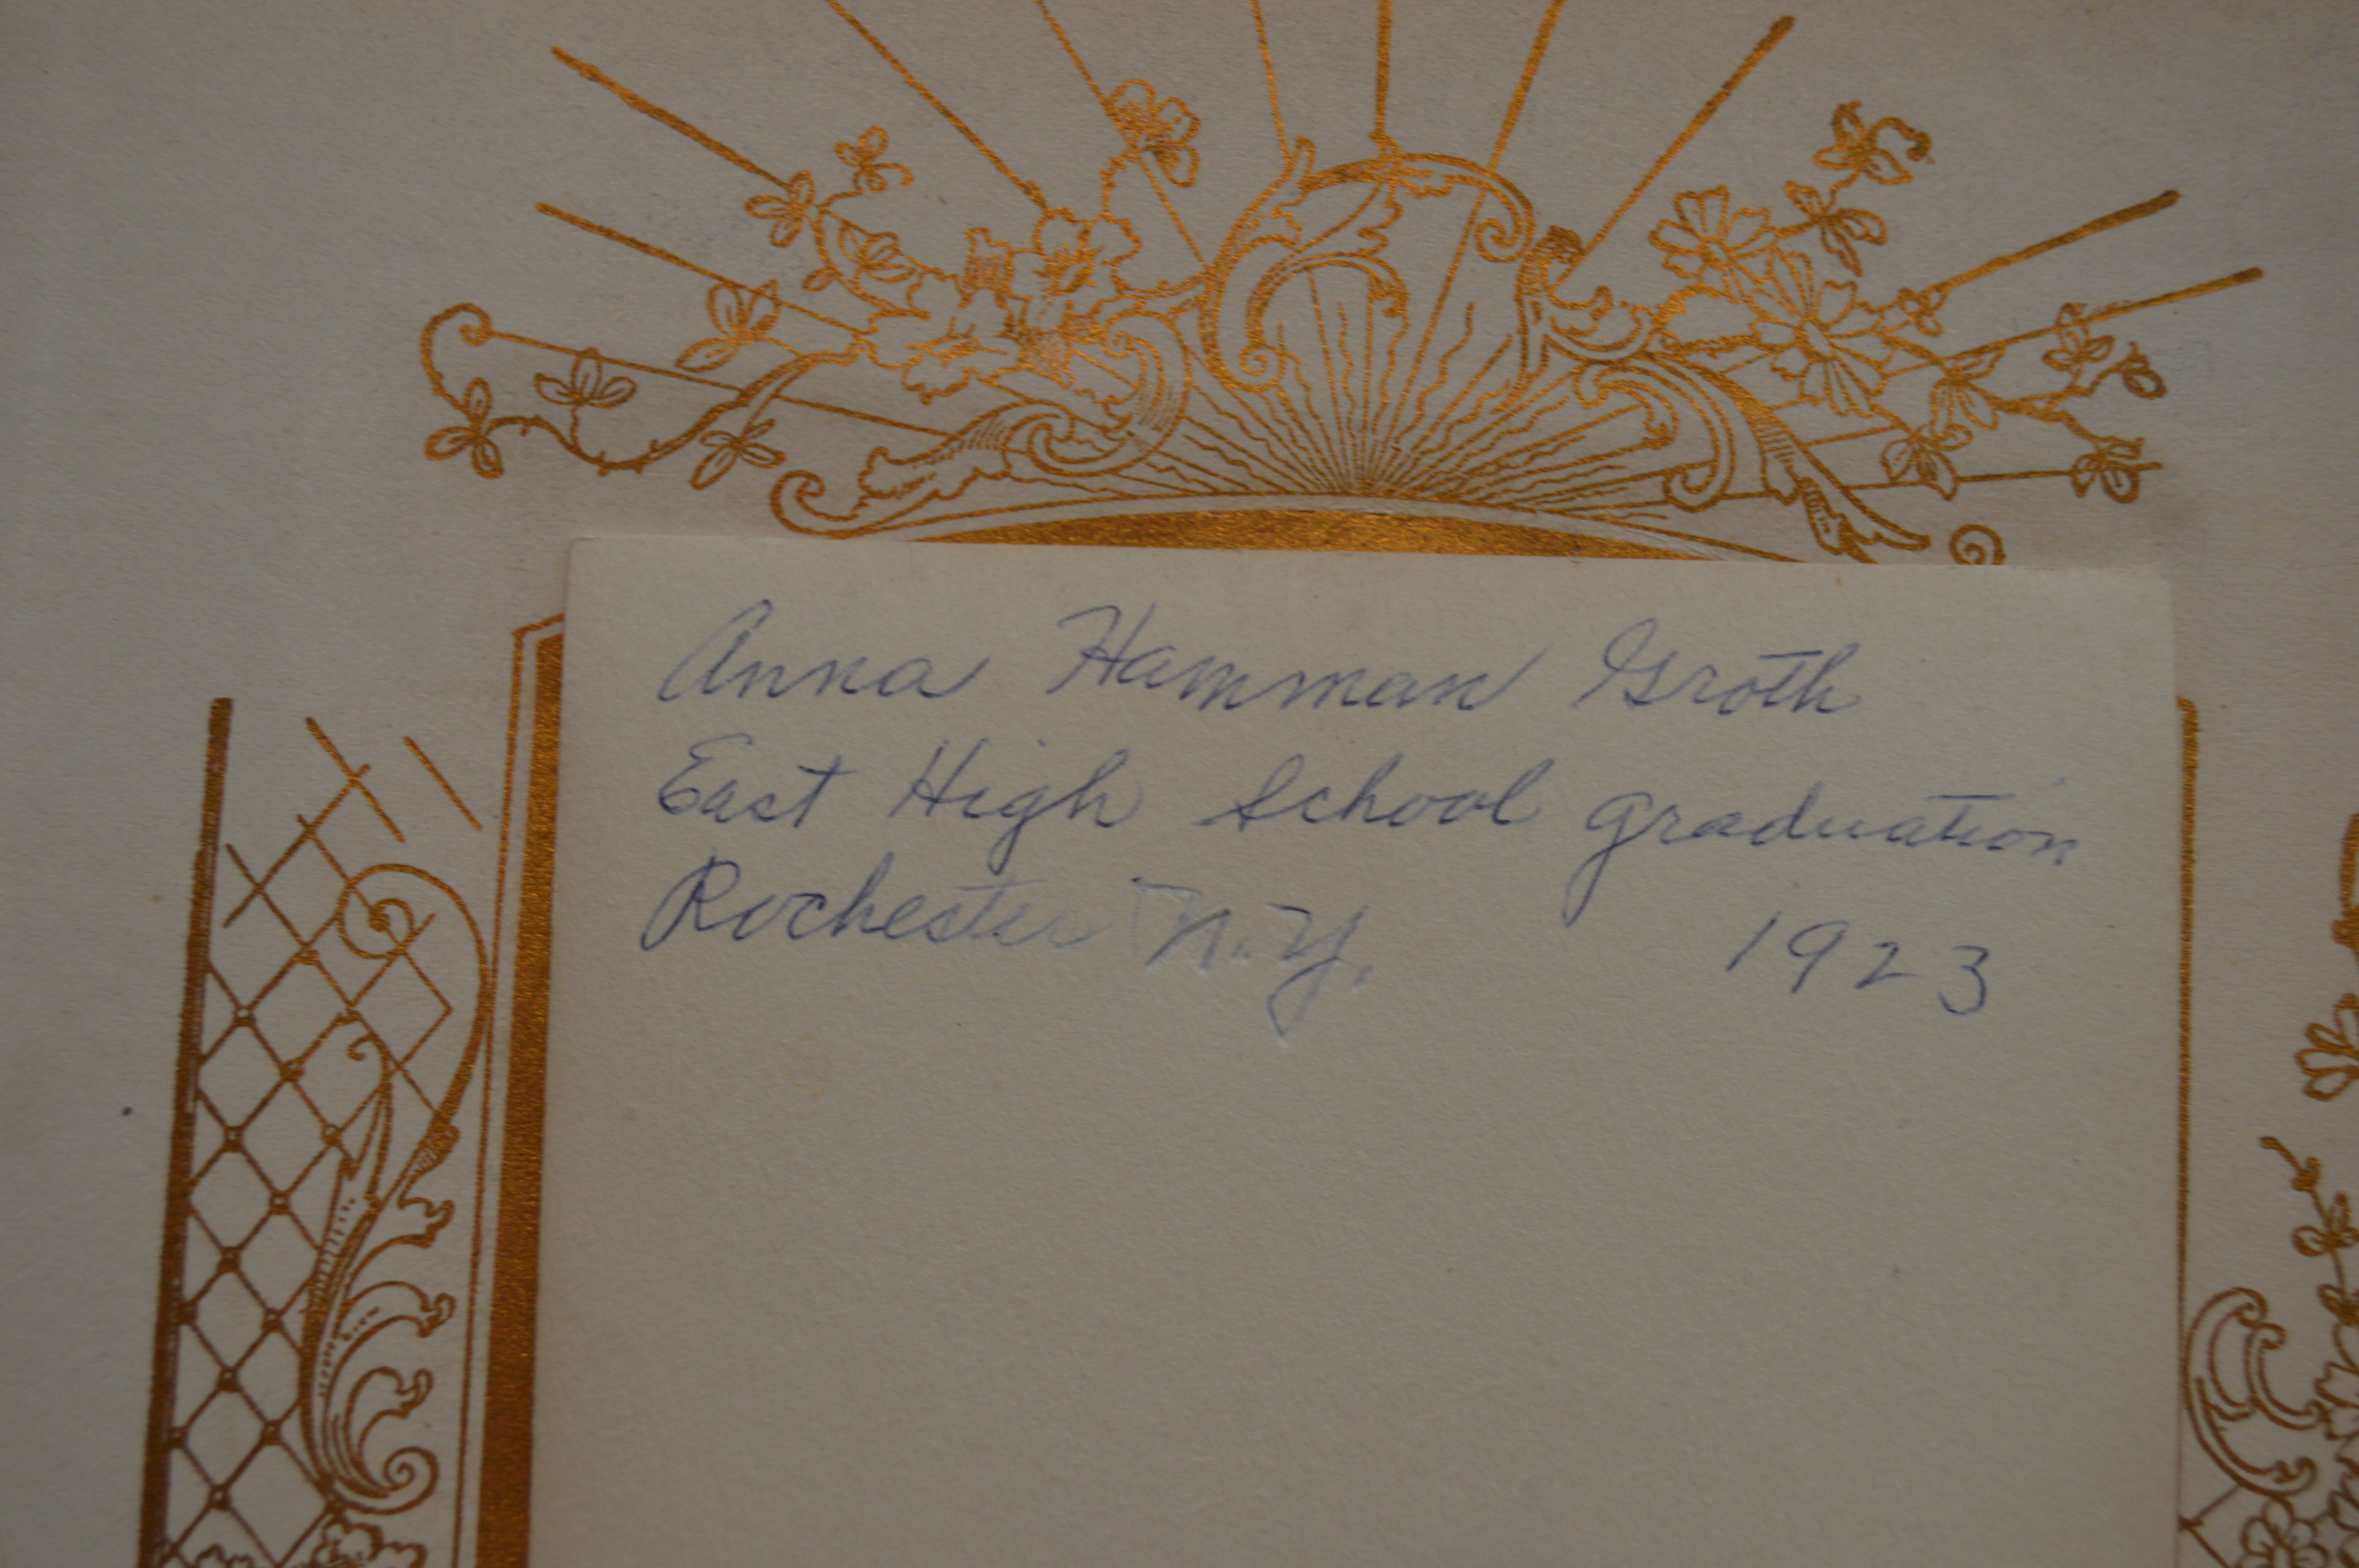 Anna Hamman Groth
East High School graduation
Rochester N.Y. 1923